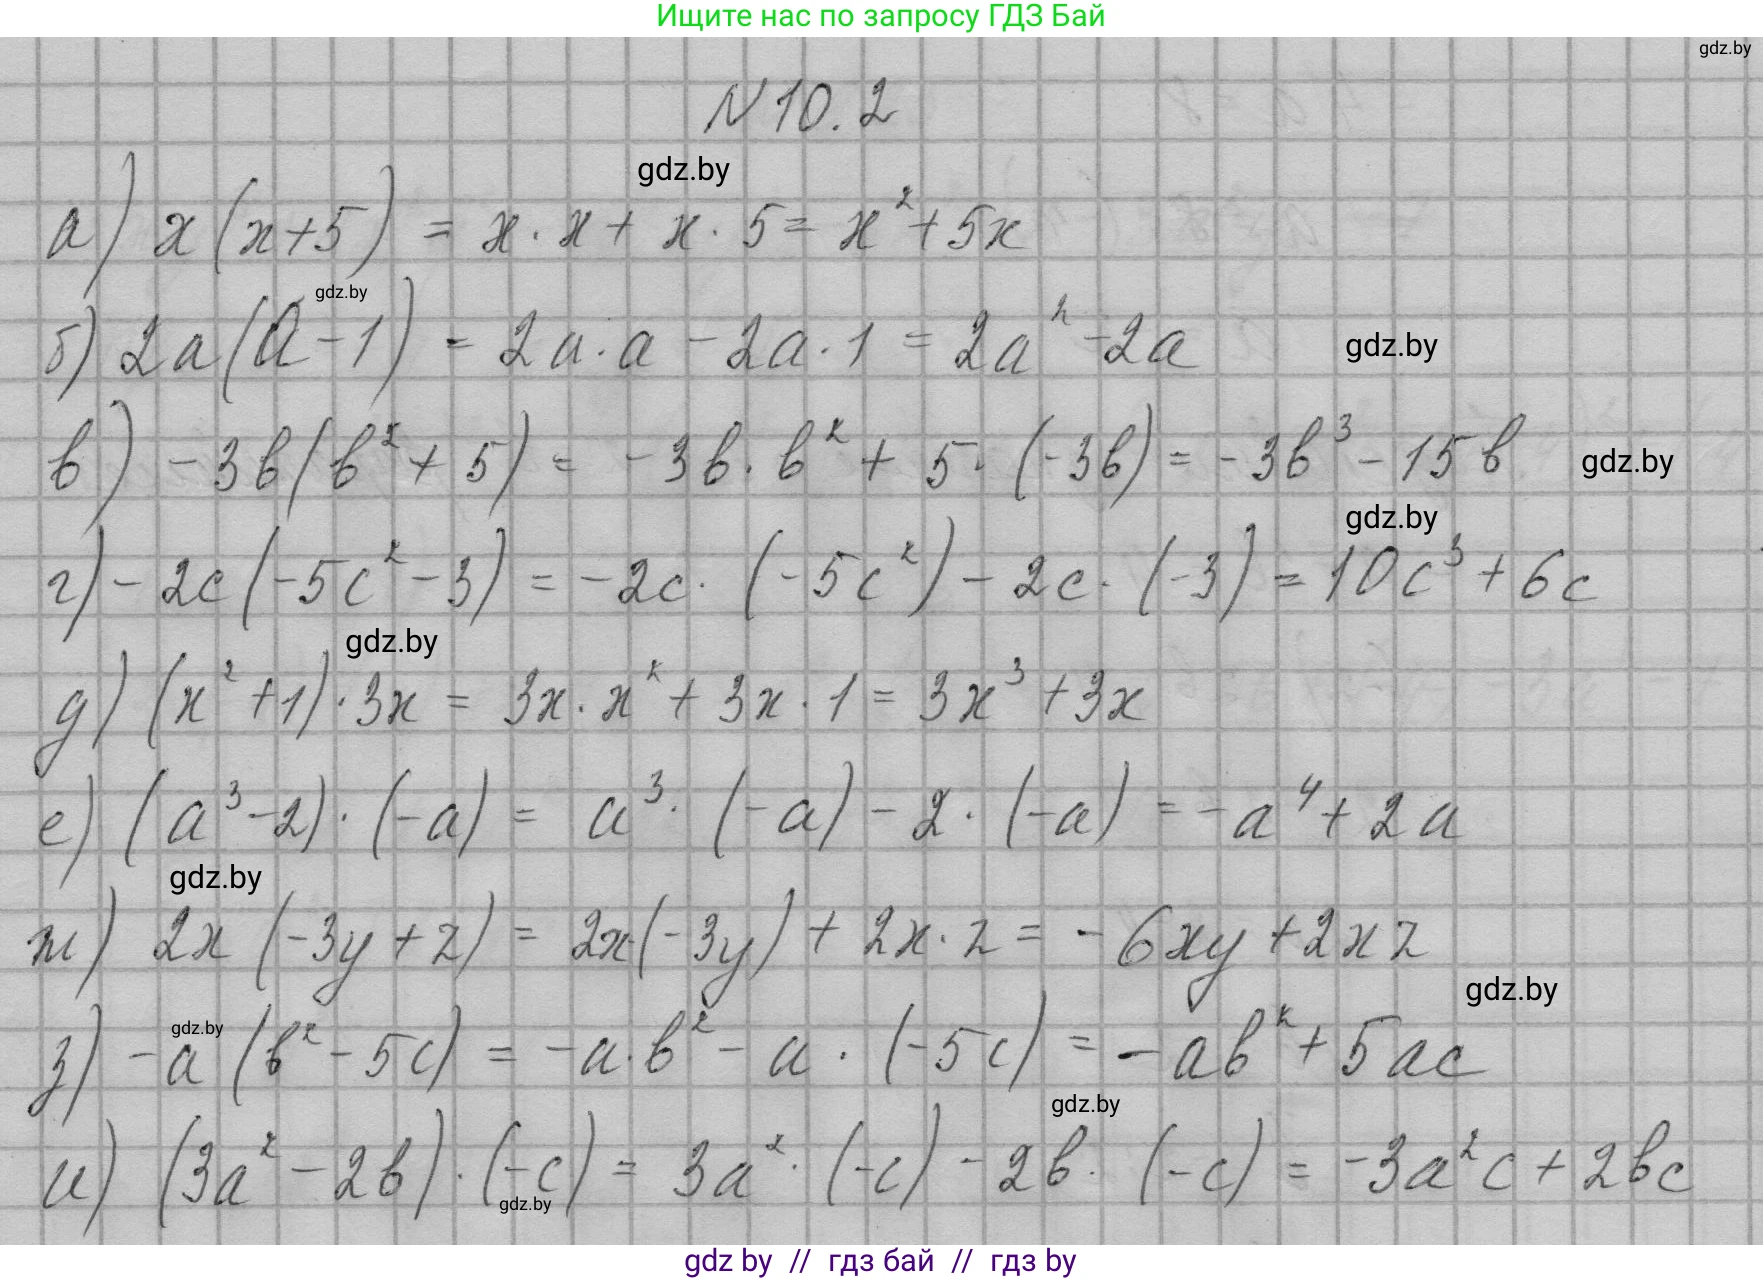 Ищите нас по запросу ГДЗ Бай
gdz.by
N 10.2
gdz.by
а) x(x+5) = x·x + x·5 = x²+5x
gdz.by
б) 2a(a-1) = 2a·a - 2a·1 = 2a² - 2a
gdz.by
в) -3b(b²+5) = -3b·b² + 5·(-3b) = -3b³ - 15b
gdz.by
gdz.by
г) -2c(-5c²-3) = -2c·(-5c²) - 2c·(-3) = 10c³ + 6c
gdz.by
д) (x²+1)·3x = 3x·x² + 3x·1 = 3x³ + 3x
е) (a³-2)·(-a) = a³·(-a) - 2·(-a) = -a⁴ + 2a
gdz.by
ж) 2x(-3y+z) = 2x·(-3y) + 2x·z = -6xy + 2xz
gdz.by
gdz.by
з) -a(b²-5c) = -a·b² - a·(-5c) = -ab² + 5ac
gdz.by
и) (3a²-2b)·(-c) = 3a²·(-c) - 2b·(-c) = -3a²c + 2bc
gdz.by
gdz by // гдз бай // гдз by